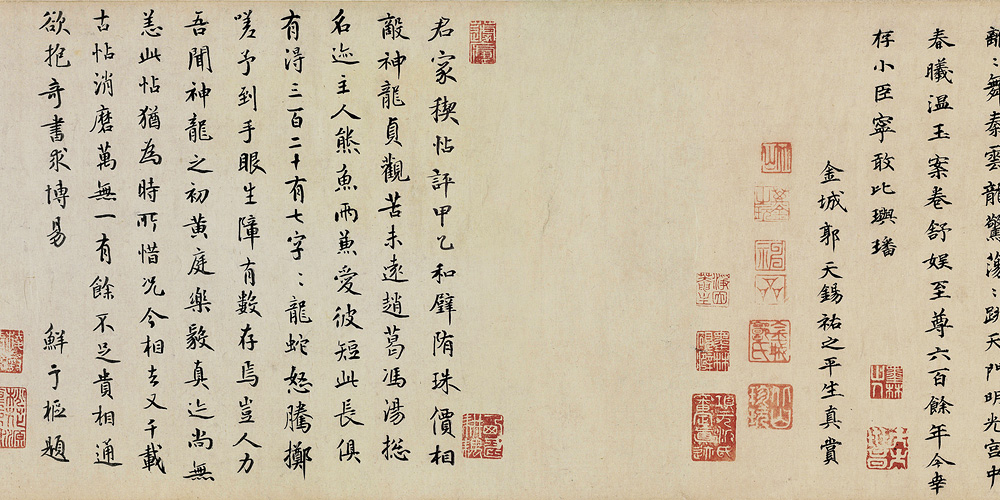 離〻舞秦雲龍驚蕩〻跌天門明光宮中
春曦温玉案卷舒娱至尊六百餘年今幸
存小臣寧敢比璵璠
金城郭天錫祐之平生真賞
君家稧帖評甲乙和璧隋珠價相
敵神龍貞觀苦未遠趙葛馮湯揔
名迹主人熊魚兩兼愛彼短此長俱
有淂三百二十有七字〻龍蛇怒騰擲
嗟予到手眼生障有數存焉豈人力
吾聞神龍之初黄庭樂毅真迹尚無
恙此帖猶為時所惜况今相去又千載
古帖消磨萬無一有餘不足貴相通
欲抱奇書求博易
鮮于樞題